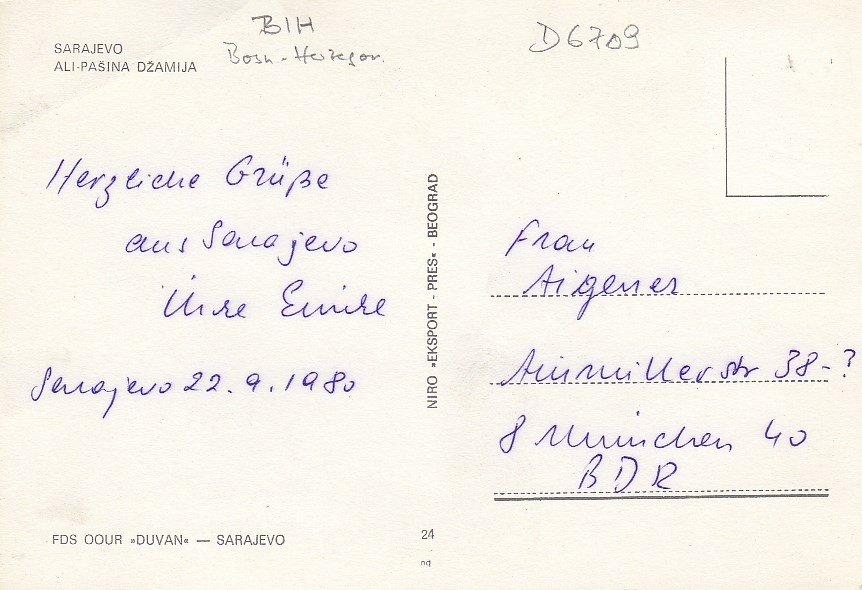 SARAJEVO
ALI-PAŠINA DŽAMIJA
BIH
Bosn.-Herzegow.
D6709
Herzliche Grüße
aus Sarajevo
Ihre
Sarajevo 22.9.1980
NIRO »EKSPORT - PRES« - BEOGRAD
Frau
Aigener
Ainmillerstr 38-?
8 München 40
BDR
FDS OOUR »DUVAN« — SARAJEVO
24